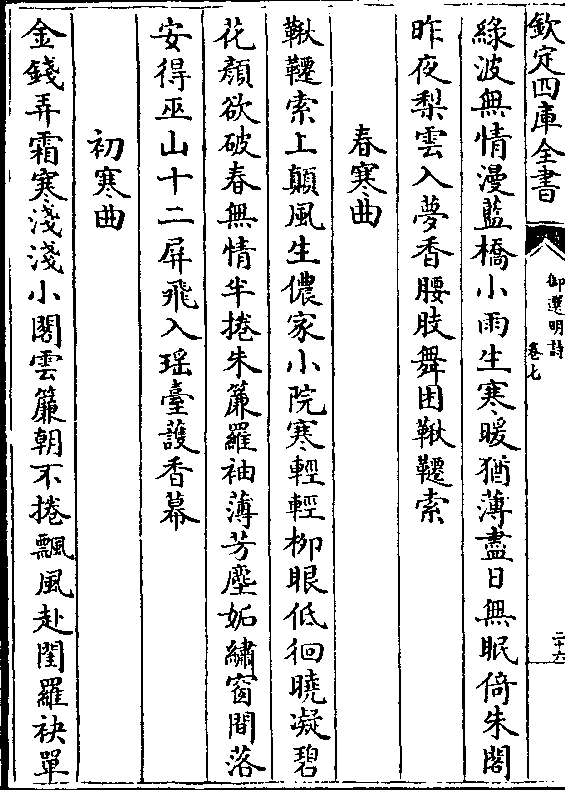 欽定四庫全書
御選明詩
卷七
二十六
綠波無情漫藍橋小雨生寒暖猶薄盡日無眠倚朱閣
昨夜梨雲入夢香腰肢舞困鞦韆索
春寒曲
鞦韆索上顛風生儂家小院寒輕輕柳眼低徊曉凝碧
花顏欲破春無情半捲朱簾羅袖薄芳塵妬繡窗間落
安得巫山十二屏飛入瑶臺護香幕
初寒曲
金錢弄霜寒淺淺小閣雲簾朝不捲飄風赴閨羅袂單